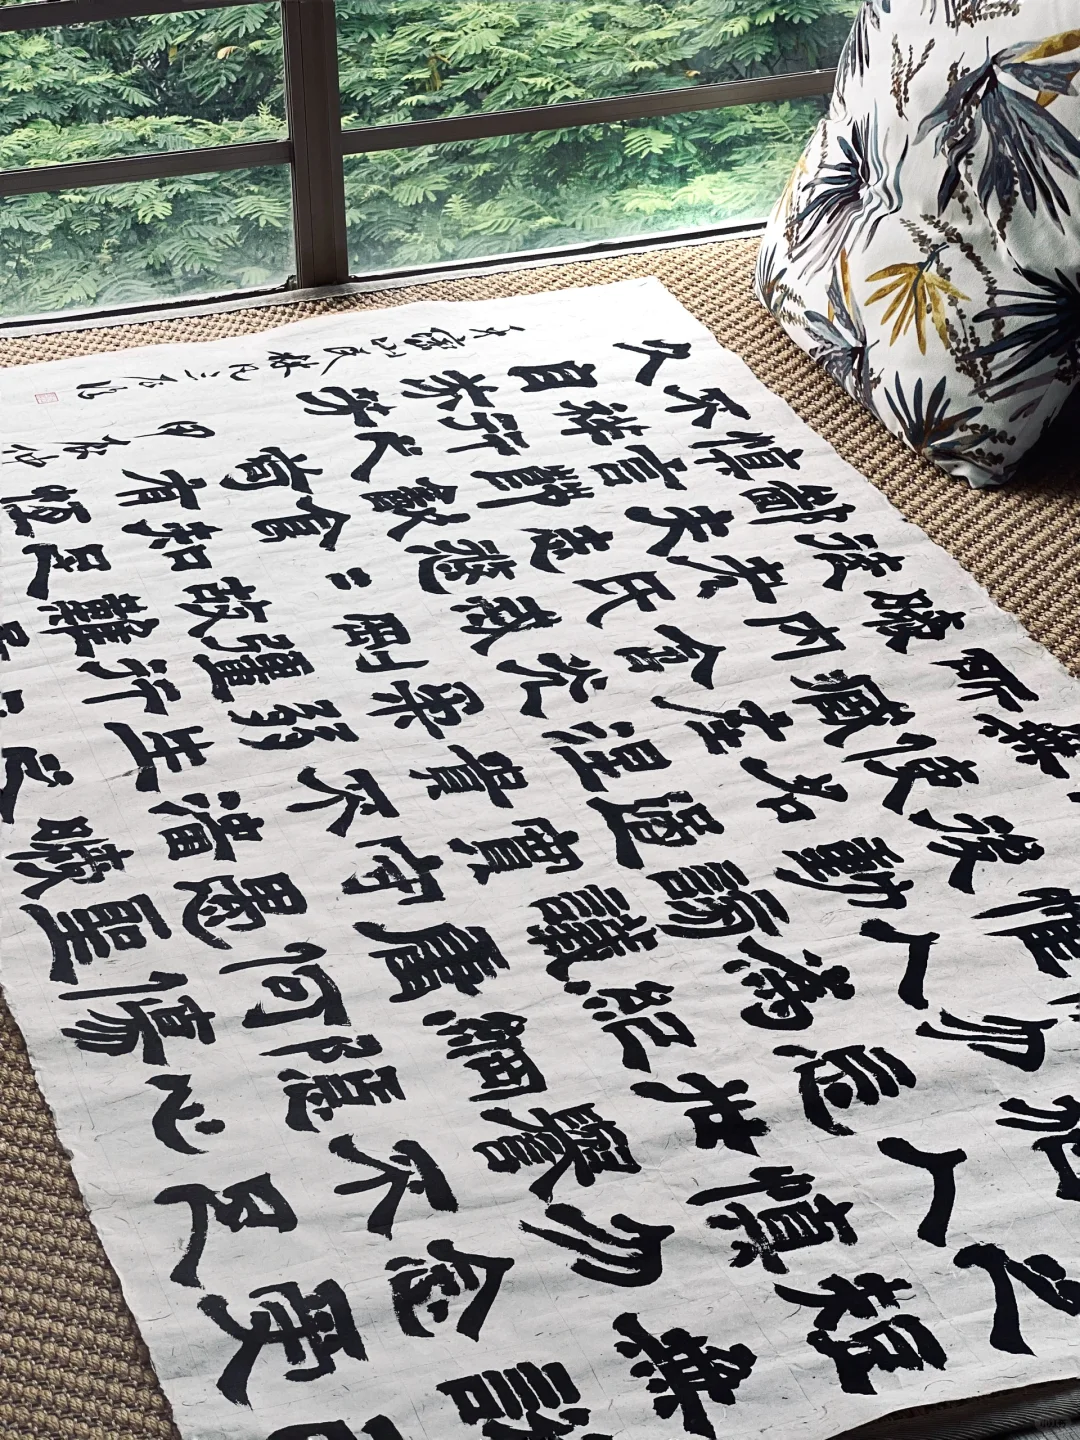 人之短無說己
施人慎勿念受
勿忘世譽不足
惟仁為紀綱隱心
後動謗議庸何傷
無使名過實守愚聖
所臧在涅貴不緇曖
曖内含光柔弱生之
徒老氏誡剛強行
鄙夫志悠=故難
慎言節飲食知足
不祥行之苟有恆
久自芬芳
甲辰仲